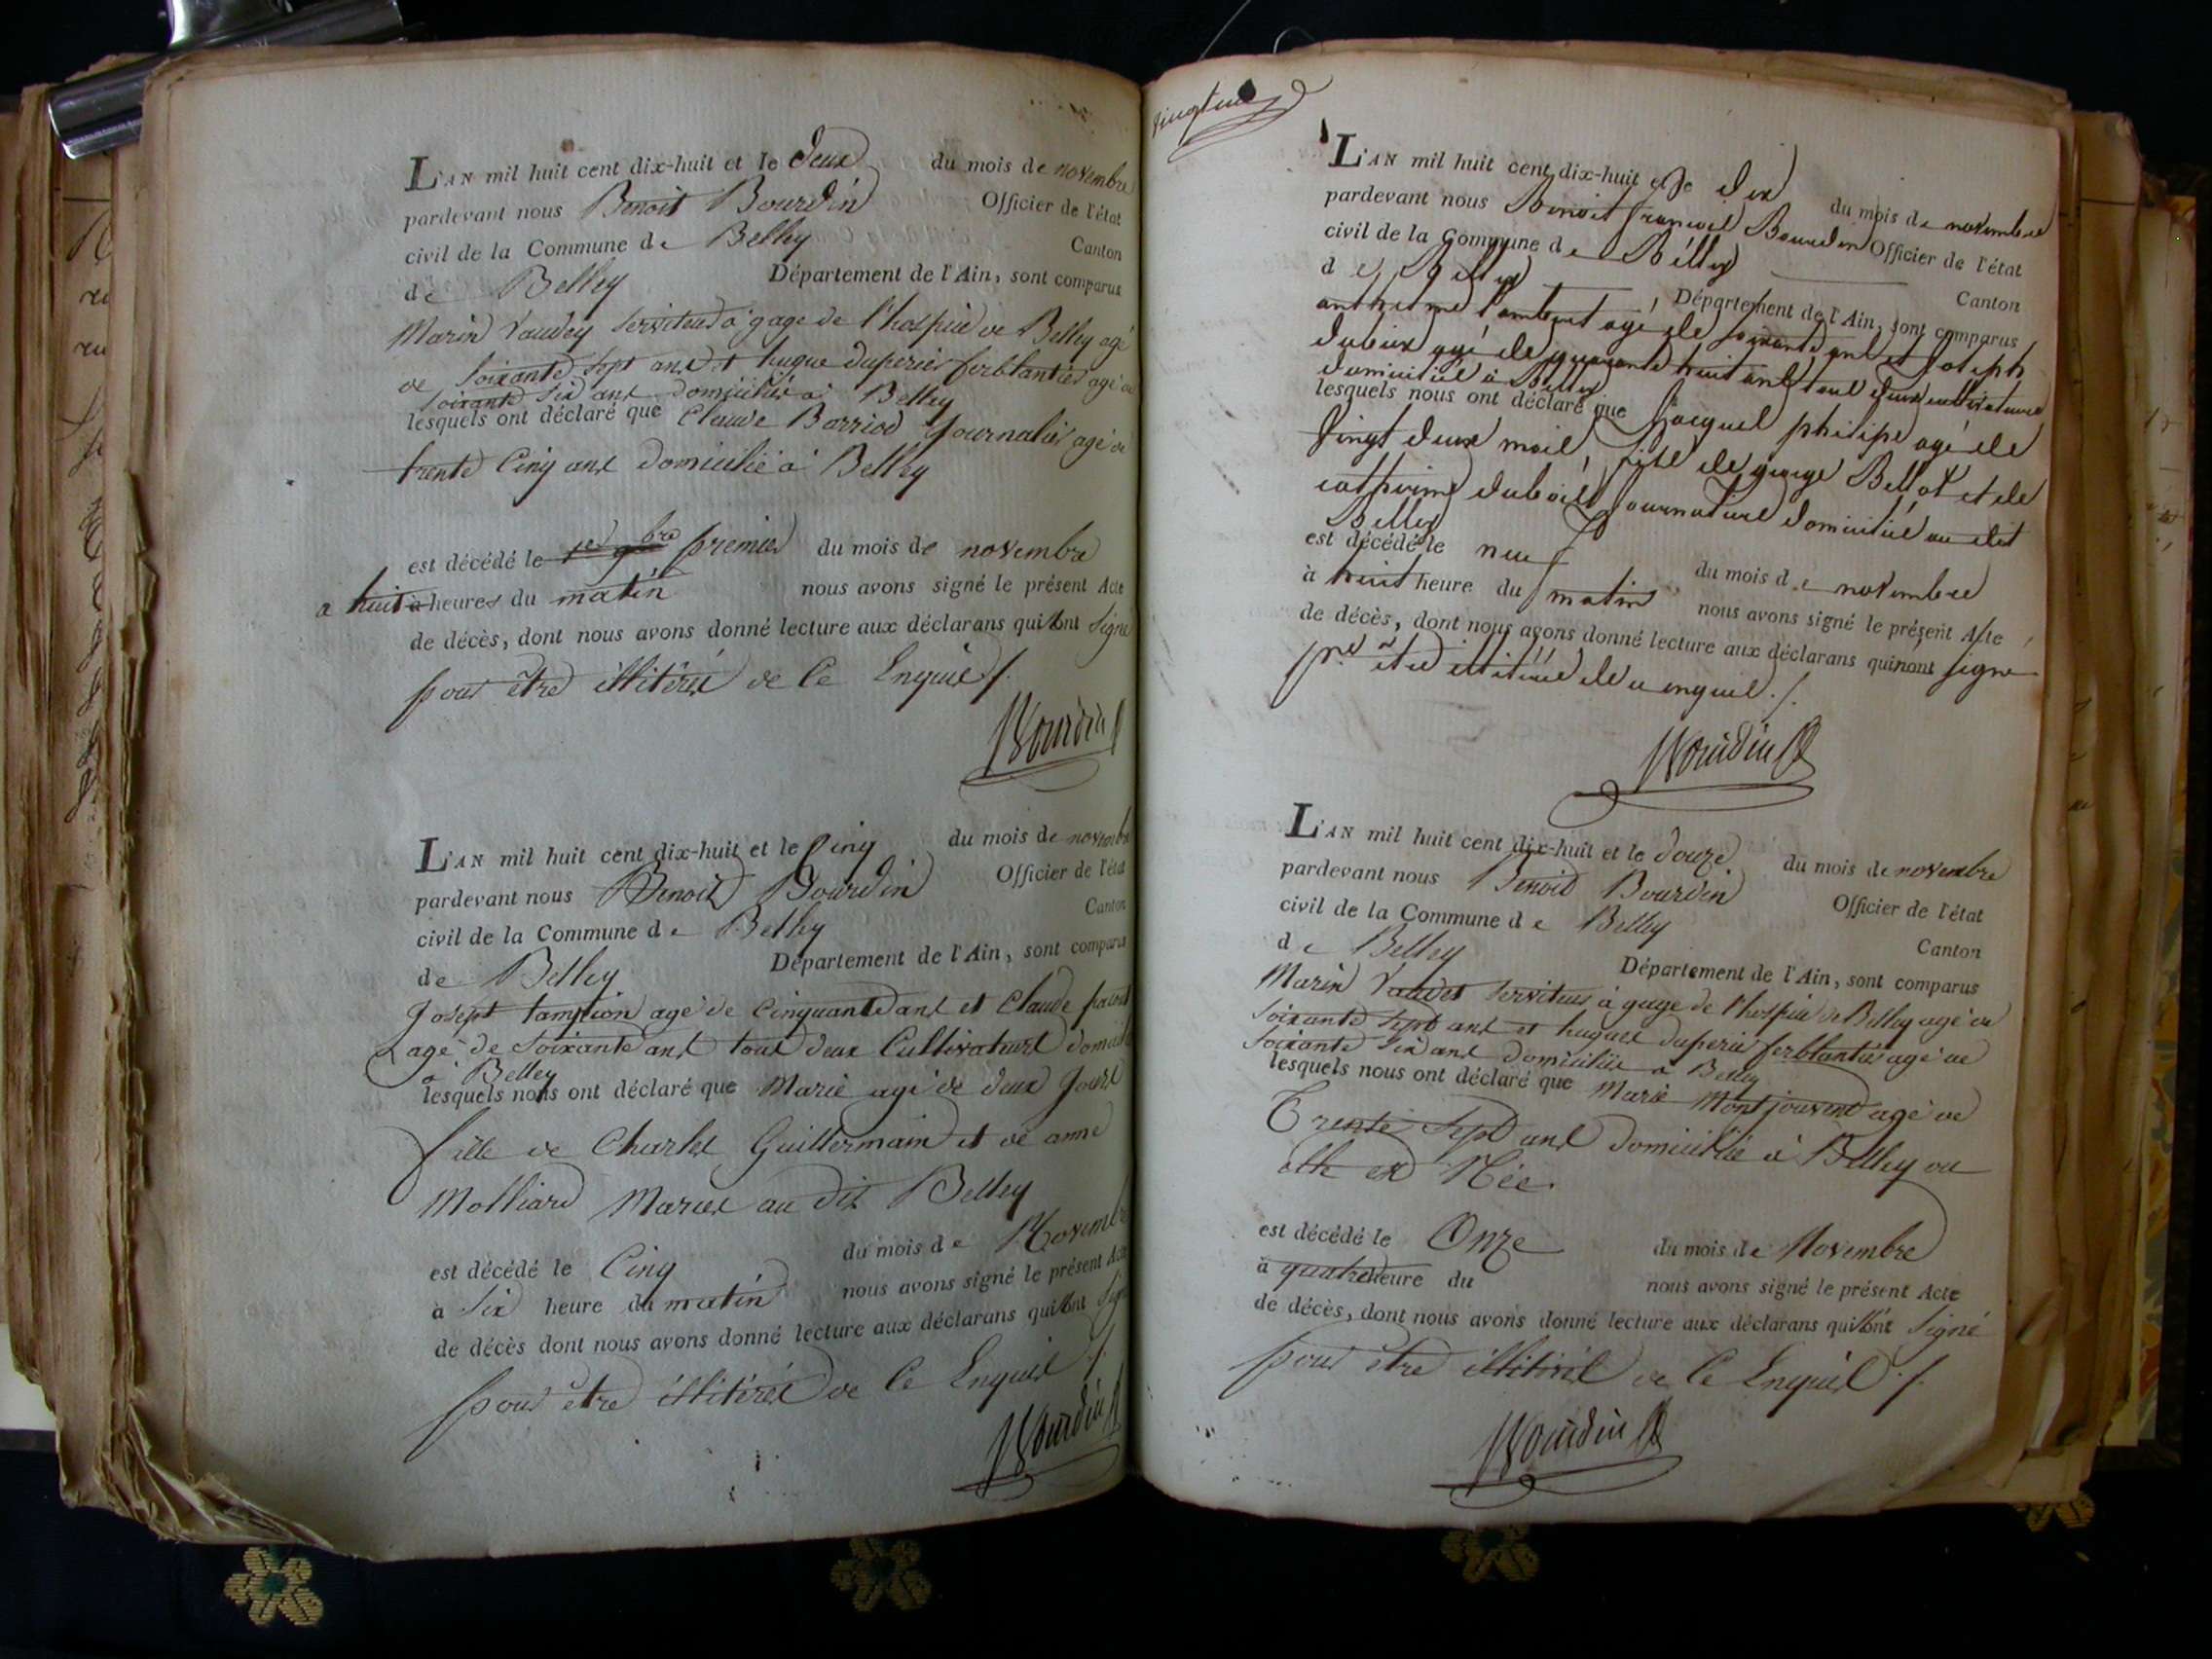 L'AN mil huit cent dix-huit et le deux du mois de novembre
pardevant nous Benoit Bourdin Officier de l'état
civil de la Commune de Belley Canton
de Belley Département de l'Ain, sont comparus
Marin Vaudey serviteur à gage de l'hospice de Belley agé
de soixante sept ans et hugue duperier ferblantier agé de
soixante six ans domiciliés à Belley
lesquels ont déclaré que Claude Barriod Journalier agé de
trente Cinq ans domicilié à Belley
est décédé le 1er 9bre premier du mois de novembre
a huit à heures du matin nous avons signé le présent Acte
de décès, dont nous avons donné lecture aux déclarans qui n'ont signé
pour être illitérés de ce Enquis ./.
Bourdin
L'AN mil huit cent dix-huit et le Cinq du mois de novembre
pardevant nous Benoit Bourdin Officier de l'état
civil de la Commune de Belley Canton
de Belley Département de l'Ain, sont comparus
Josept tampion agé de Cinquante ans et Claude
agé de Soixante ans tous deux Cultivateurs
à Belley
lesquels nous ont déclaré que Marie agé de deux Jours
fille de Charles Guillermain et de anne
Molliard Mariés au dit Belley
est décédé le Cinq du mois de Novembre
à Six heure du matin nous avons signé le présent Acte
de décès dont nous avons donné lecture aux déclarans qui n'ont Signé
pour être illitérés de Ce Enquis ./.
Bourdin
vingt
L'AN mil huit cent dix-huit et le dix du mois de novembre
pardevant nous Benoit françois Bourdin Officier de l'état
civil de la Commune de Belley Canton
de Belley Département de l'Ain, sont comparus
anthelme Lambert agé de soixante ans et Joseph
agé de quarante huit ans tous deux cultivateurs
domiciliés à Belley
lesquels nous ont déclaré que Jacques philipe agé de
Vingt deux mois, fils de george Bellot et de
catherine dubois Journaliers domiciliés au dit
Belley
est décédé le neuf du mois de novembre
à huit heure du matin nous avons signé le présent Acte
de décès, dont nous avons donné lecture aux déclarans qui n'ont signé
pr être illitérés de ce enquis ./.
Bourdin
L'AN mil huit cent dix-huit et le douze du mois de novembre
pardevant nous Benoit Bourdin Officier de l'état
civil de la Commune de Belley Canton
de Belley Département de l'Ain, sont comparus
Marin Vaudet serviteur à gage de l'hospice de Belley agé de
soixante sept ans et hugues duperier ferblantier agé de
soixante six ans domiciliés à Belley
lesquels nous ont déclaré que Marie Montjouvent agé de
Trente sept ans domiciliée à Belley ou
elle est Née.
est décédé le Onze du mois de Novembre
à quatre heure du nous avons signé le présent Acte
de décès, dont nous avons donné lecture aux déclarans qui n'ont signé
pour être illitérés de Ce Enquis ./.
Bourdin